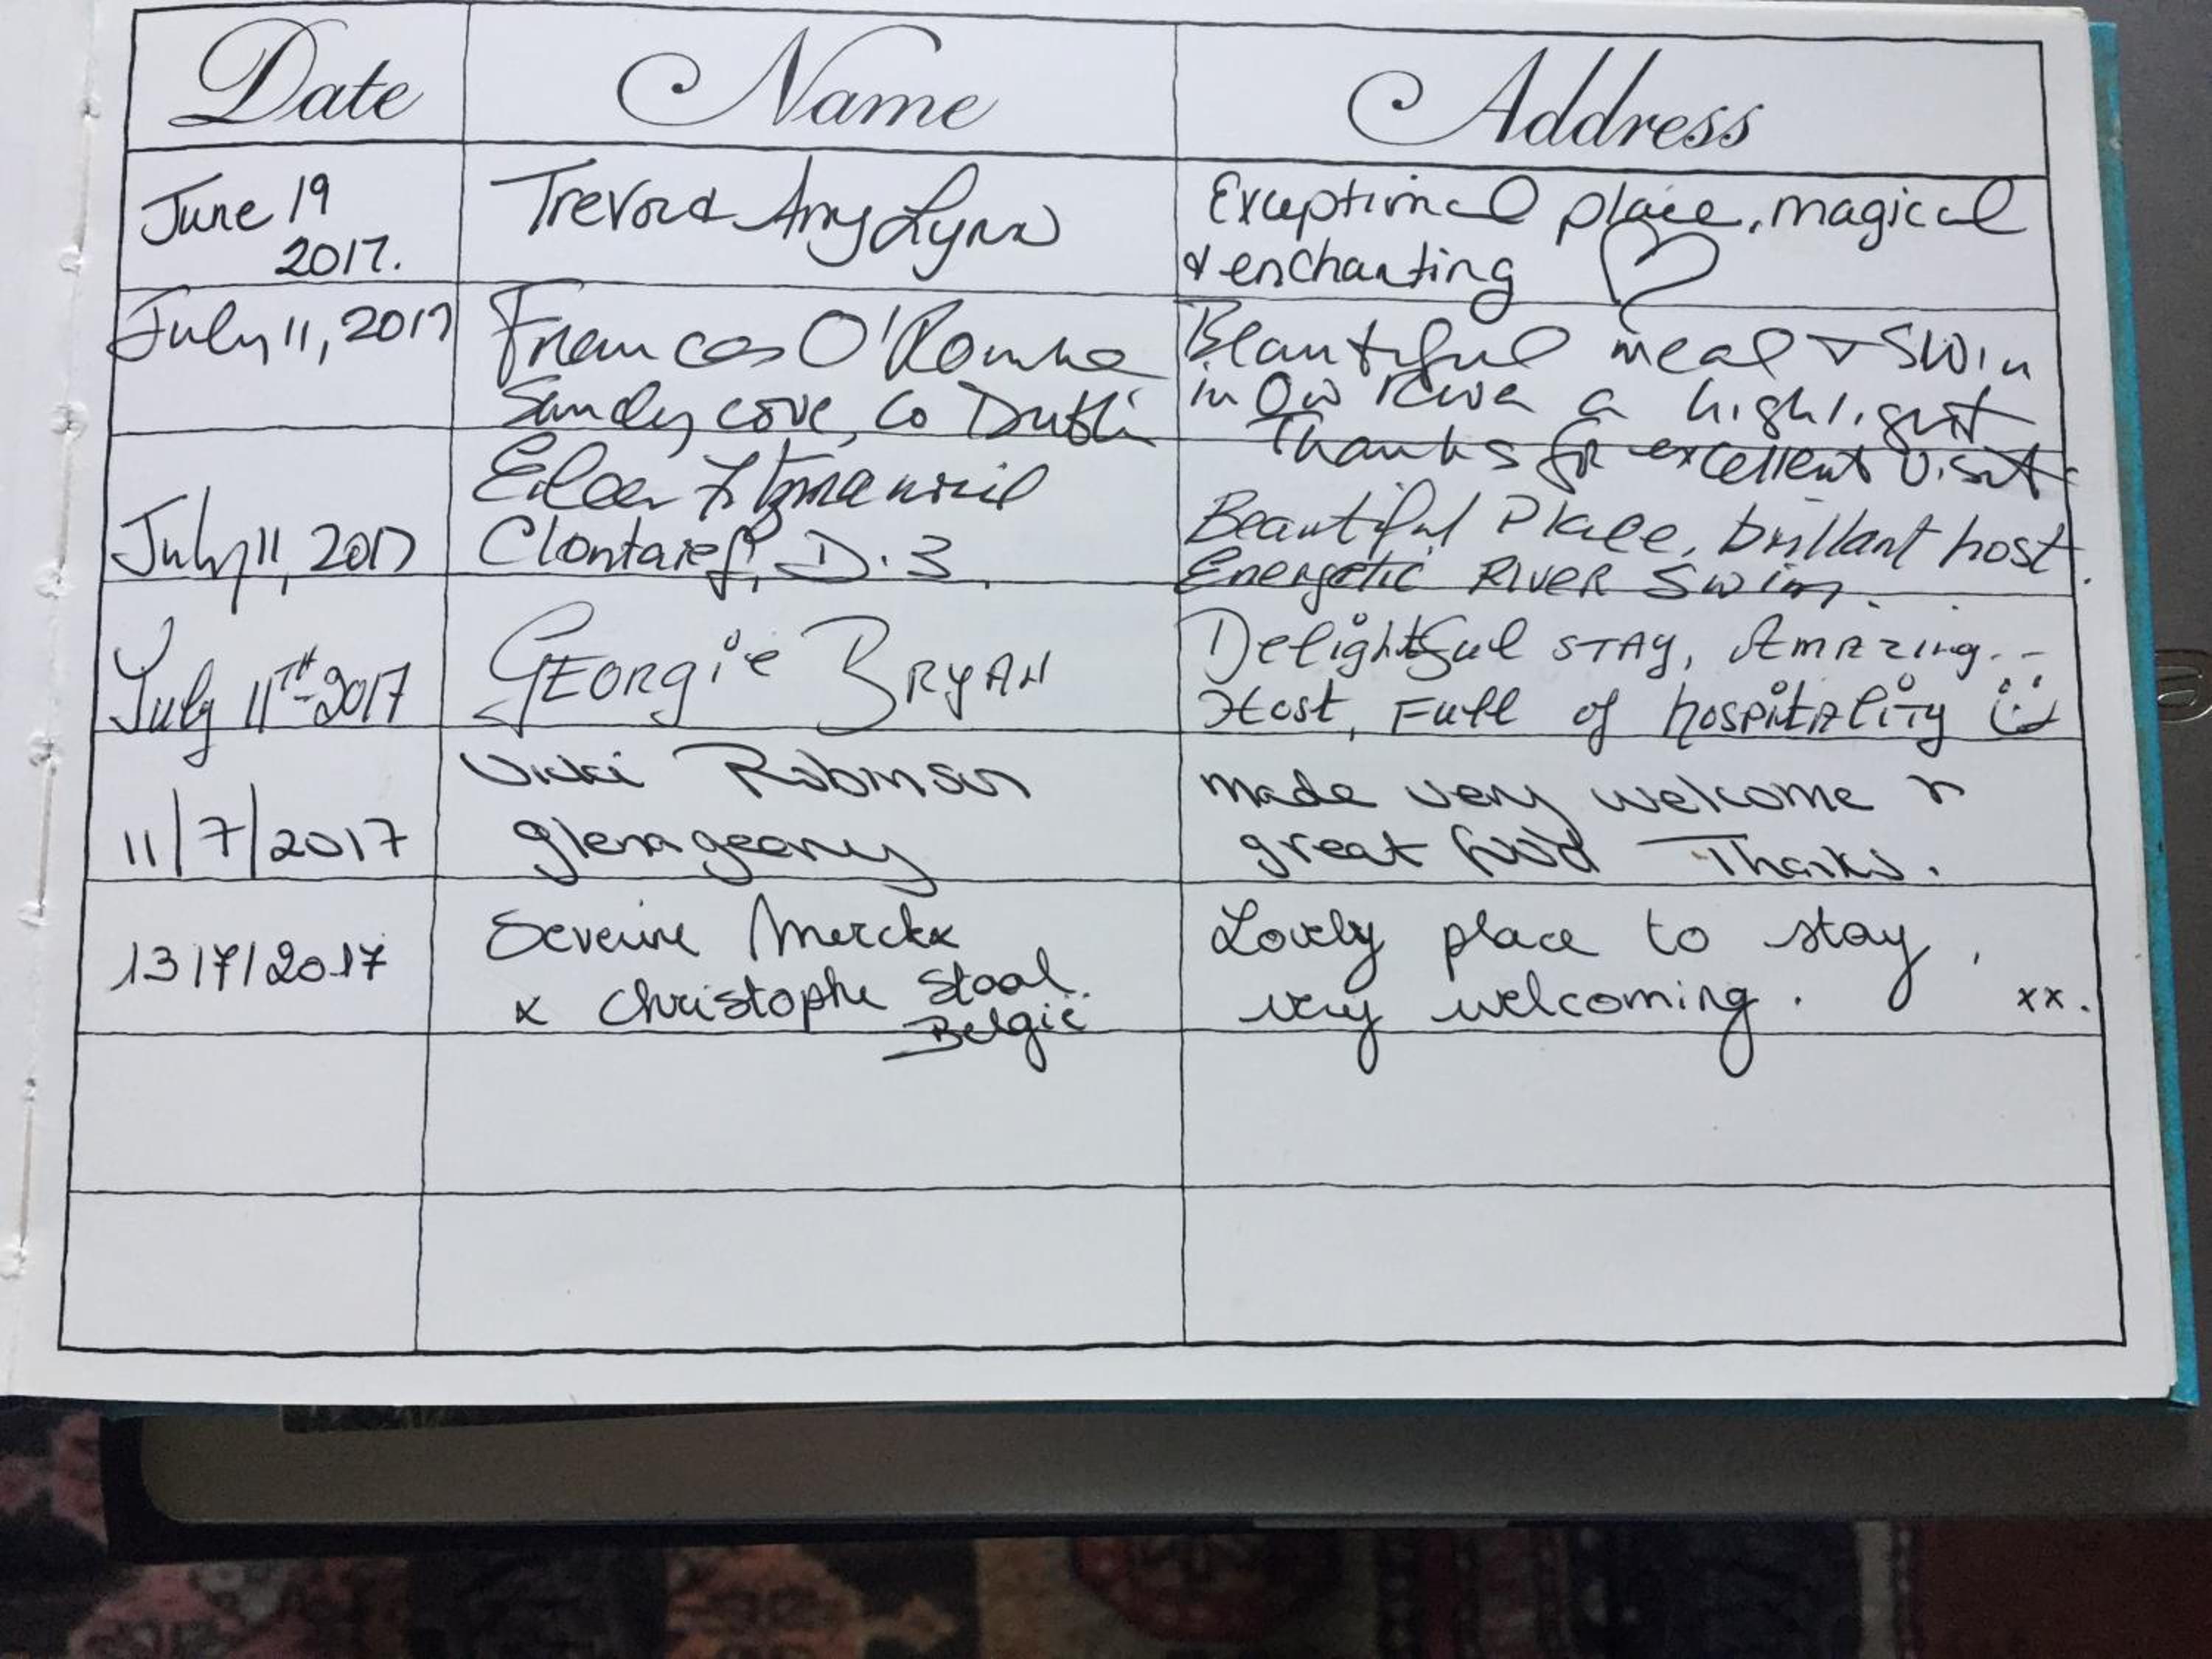 Date Name Address
June 19 2017. Trevor & Amy Lynn Exceptional place, magical & enchanting
July 11, 2017 Frances O'Rourke Sandycove, Co Dublin Beautiful meal & swim in River a highlight Thanks for excellent visit
July 11, 2017 Clontarf, D.3. Beautiful Place, brillant host. Energetic River Swim.
July 11TH 2017 Georgie Bryan Delightful STAY, Amazing... Host, Full of hospitality
11/7/2017 Vicki Robinson glenageary made very welcome & great food Thanks.
13/7/2017 Severine Merckx & Christophe Staal België Lovely place to stay, very welcoming. xx.